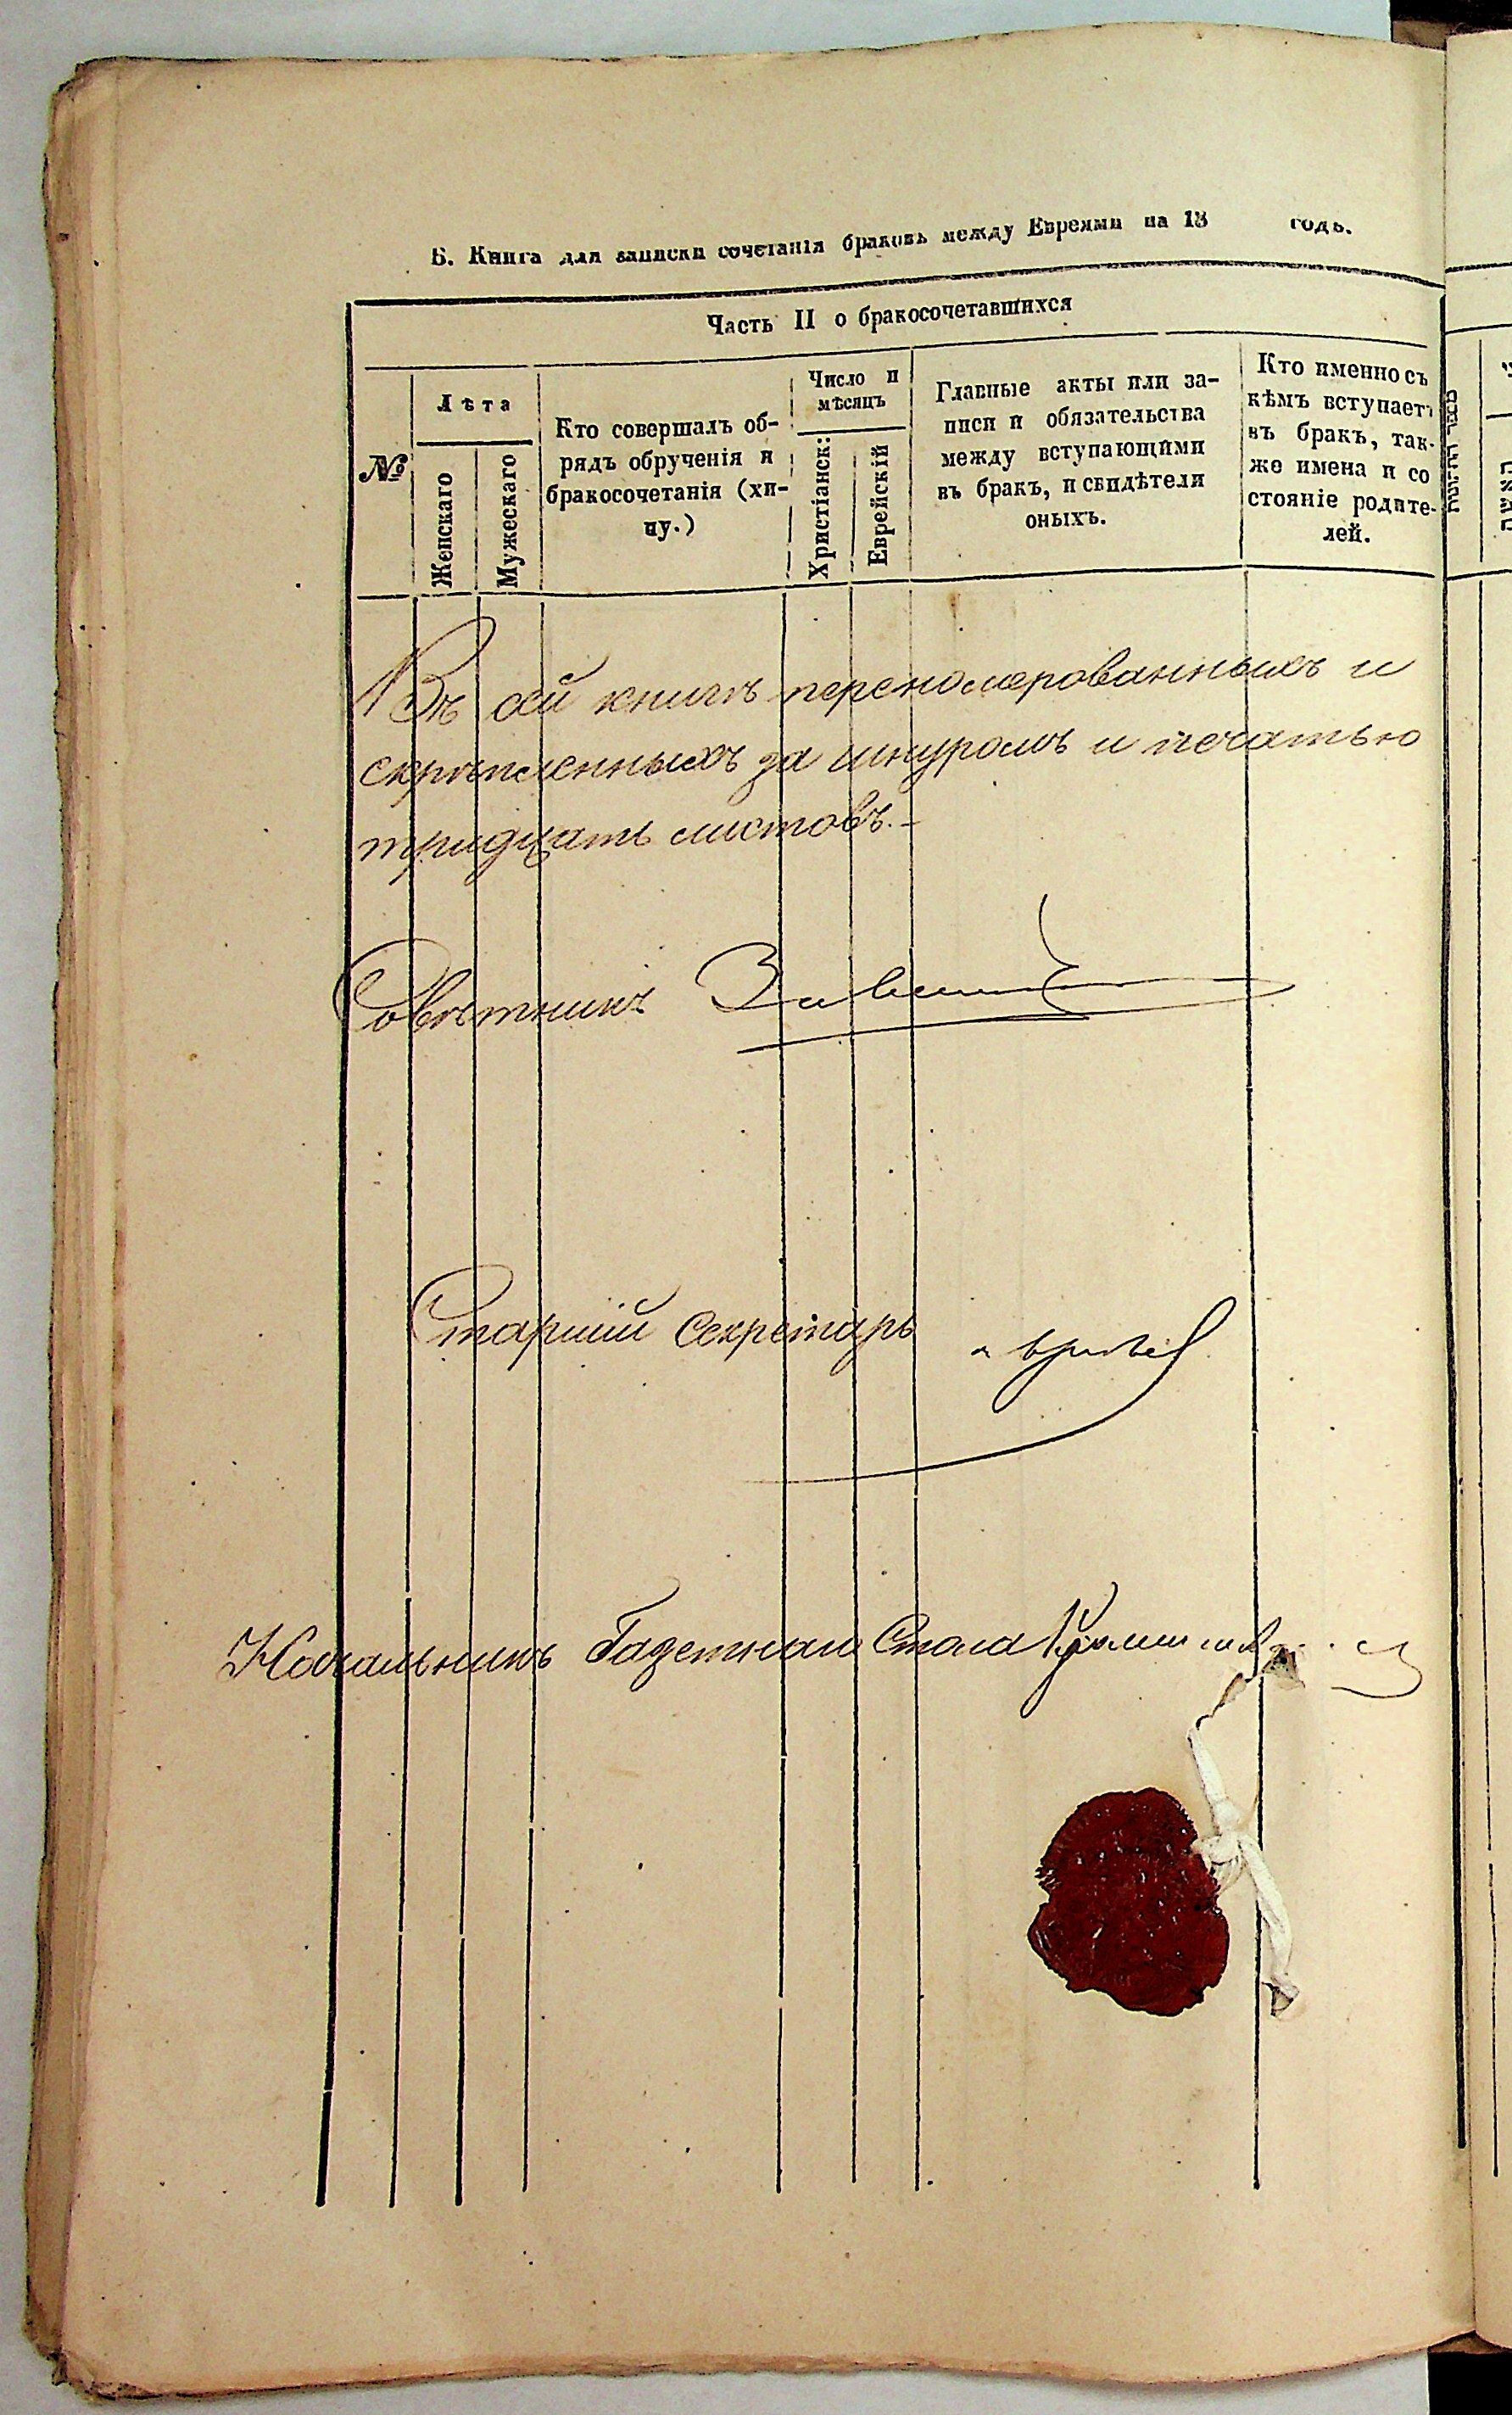 Б. Книга для записки сочетанія браковъ между Евреями на 18 годъ.
Часть II о бракосочетавшихся
№
Лѣта
Женскаго
Мужескаго
Кто совершалъ об-
рядъ обрученія и
бракосочетанія (хи-
пу.)
Число и
мѣсяцъ
Христіанск:
Еврейскій
Главные акты или за-
писи и обязательства
между вступающими
въ бракъ, и свидѣтели
оныхъ.
Кто именно съ
кѣмъ вступаетъ
въ бракъ, так-
же имена и со
стояніе родите-
лей.
Въ сей книгѣ перенумерованныхъ и
скрѣпленныхъ за шнуромъ и печатью
тридцать листовъ.-
Совѣтникъ
Старшій Секретарь
Начальникъ Газетнаго Стола